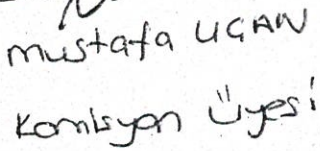 Mustafa UÇAN
Komisyon Üyesi